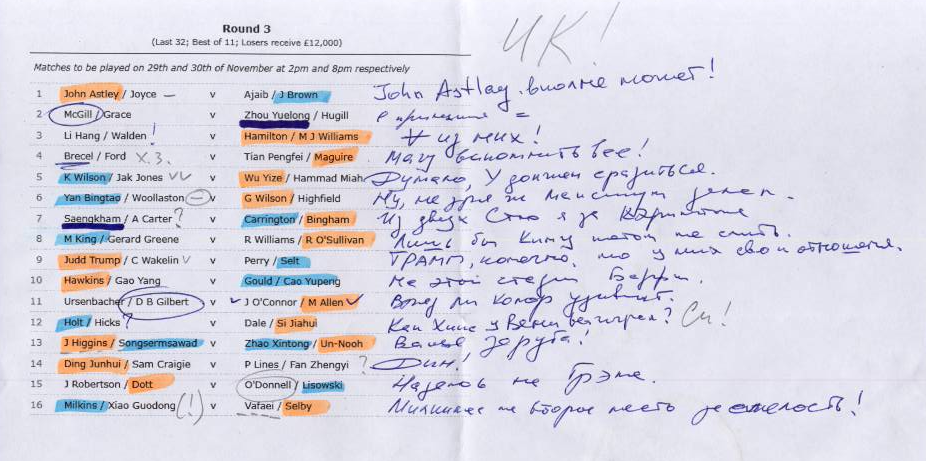 Round 3
ЧК!
(Last 32; Best of 11; Losers receive £12,000)
Matches to be played on 29th and 30th of November at 2pm and 8pm respectively
1 John Astley / Joyce – v Ajaib / J Brown John Astley. вполне может!
2 McGill / Grace v Zhou Yuelong / Hugill в принципе =
3 Li Hang / Walden ! v Hamilton / M J Williams ∀ из них!
4 Brecel / Ford Х.З. v Tian Pengfei / Maguire Могу вспомнить все!
5 K Wilson / Jak Jones VV v Wu Yize / Hammad Miah Думаю, У должен сразиться.
6 Yan Bingtao / Woollaston – v G Wilson / Highfield Ну, не зря же
7 Saengkham / A Carter ? v Carrington / Bingham Из двух Стю я за Кэрингтона
8 M King / Gerard Greene v R Williams / R O'Sullivan Лишь бы Кингу не
9 Judd Trump / C Wakelin V v Perry / Selt ТРАМП, конечно, но у них свои отношения.
10 Hawkins / Gao Yang v Gould / Cao Yupeng Не этой стадии Барри.
11 Ursenbacher / D B Gilbert v J O'Connor / M Allen Вряд ли Конор удивит.
12 Holt / Hicks ? v Dale / Si Jiahui Как Хикс у Вени выиграл? Си!
13 J Higgins / Songsermsawad v Zhao Xintong / Un-Nooh Ванье заруба!
14 Ding Junhui / Sam Craigie v P Lines / Fan Zhengyi ? Дин!
15 J Robertson / Dott v O'Donnell / Lisowski Надеюсь не Грэм.
16 Milkins / Xiao Guodong (!) v Vafaei / Selby Милкинс на второе место за смелость!